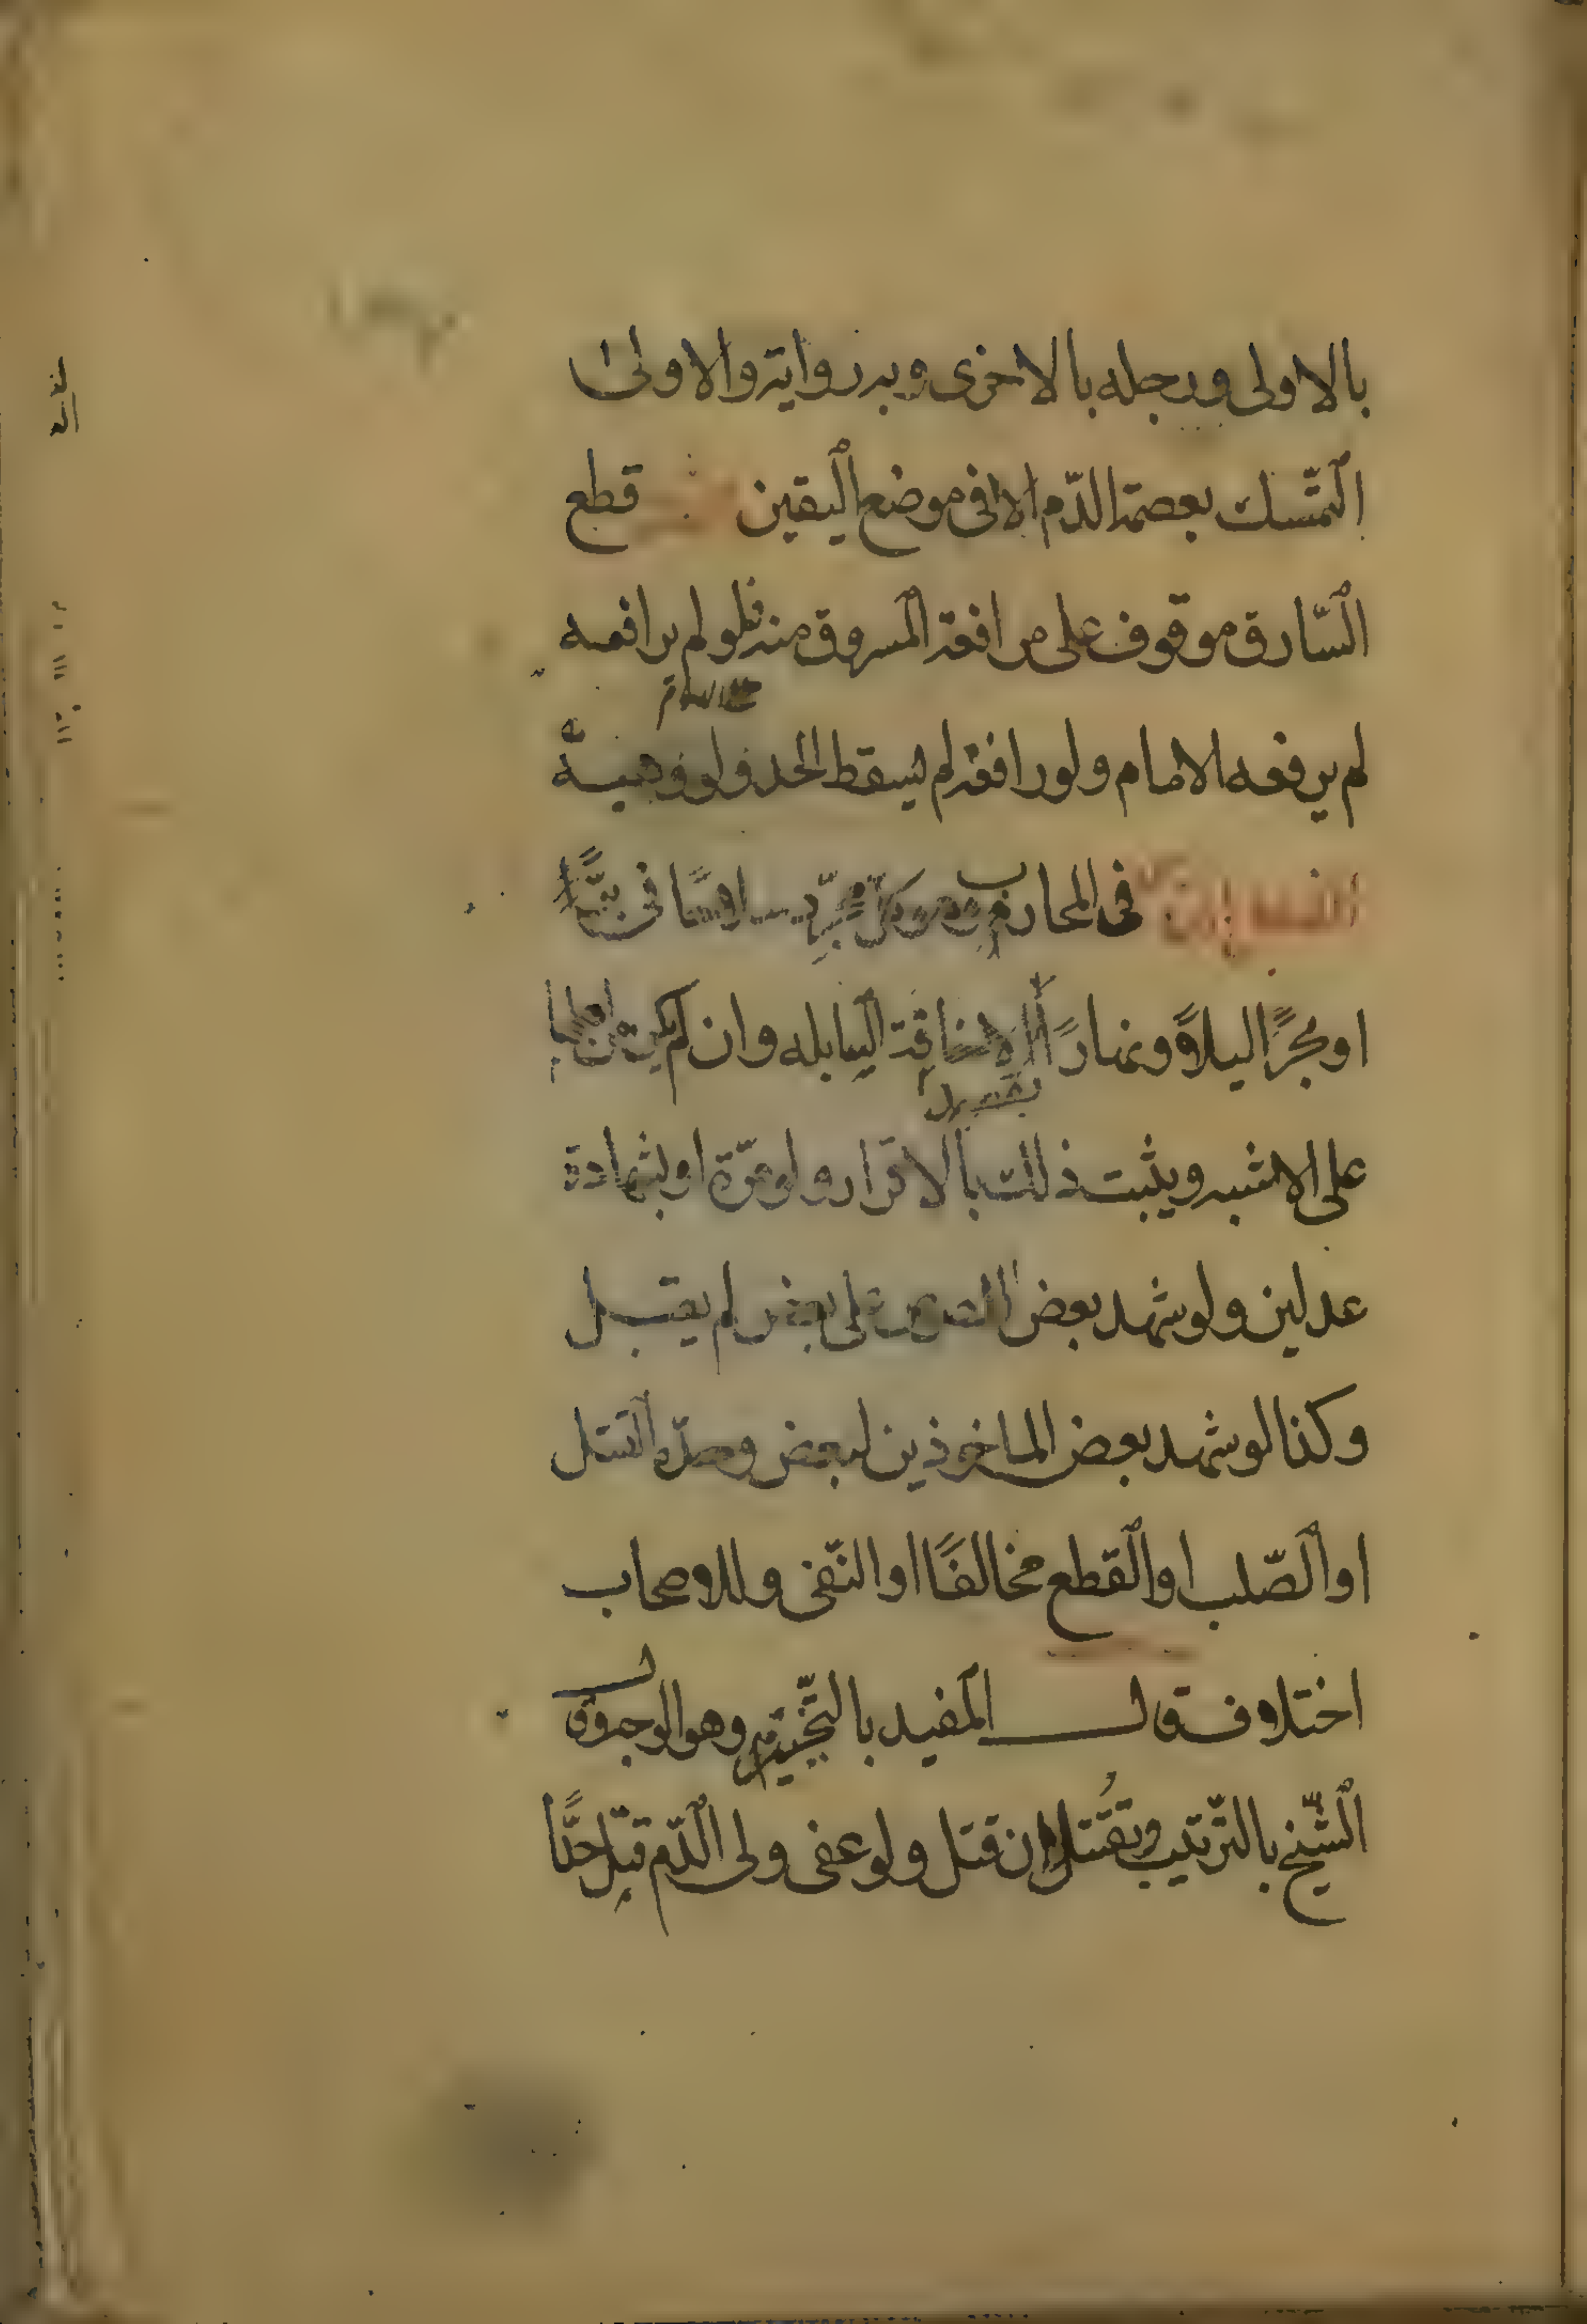 بالاولى ورجله بالاخرى وبه رواية والاولى
التّمسك بعصمة الدّم الا فى موضع اليقين قطع
السّارق موقوف على مرافعة المسروق منه فلو لم يرافعه
لم يرفعه الامام ولو رافعه لم يسقط الحد ولو وهبه
فى المحارب وهو كل مجرّد سلاحًا فى برًّا
او بحرًا ليلاً ونهارًا لاخافة السابله وان لم يكن من اهلها
على الاشبه ويثبت ذلك بالاقرار ولو مرّة او بشهادة
عدلين ولو شهد بعض اللصوص على بعض لم يقبل
وكذا لو شهد بعض الماخوذين لبعض وحدّه القتل
او الصّلب او القطع مخالفًا او النّفى وللاصحاب
اختلاف قال المفيد بالتّخيير وهو الوجه وقال
الشّيخ بالتّرتيب يقتل ان قتل ولو عفى ولى الدّم قتل حدًّا